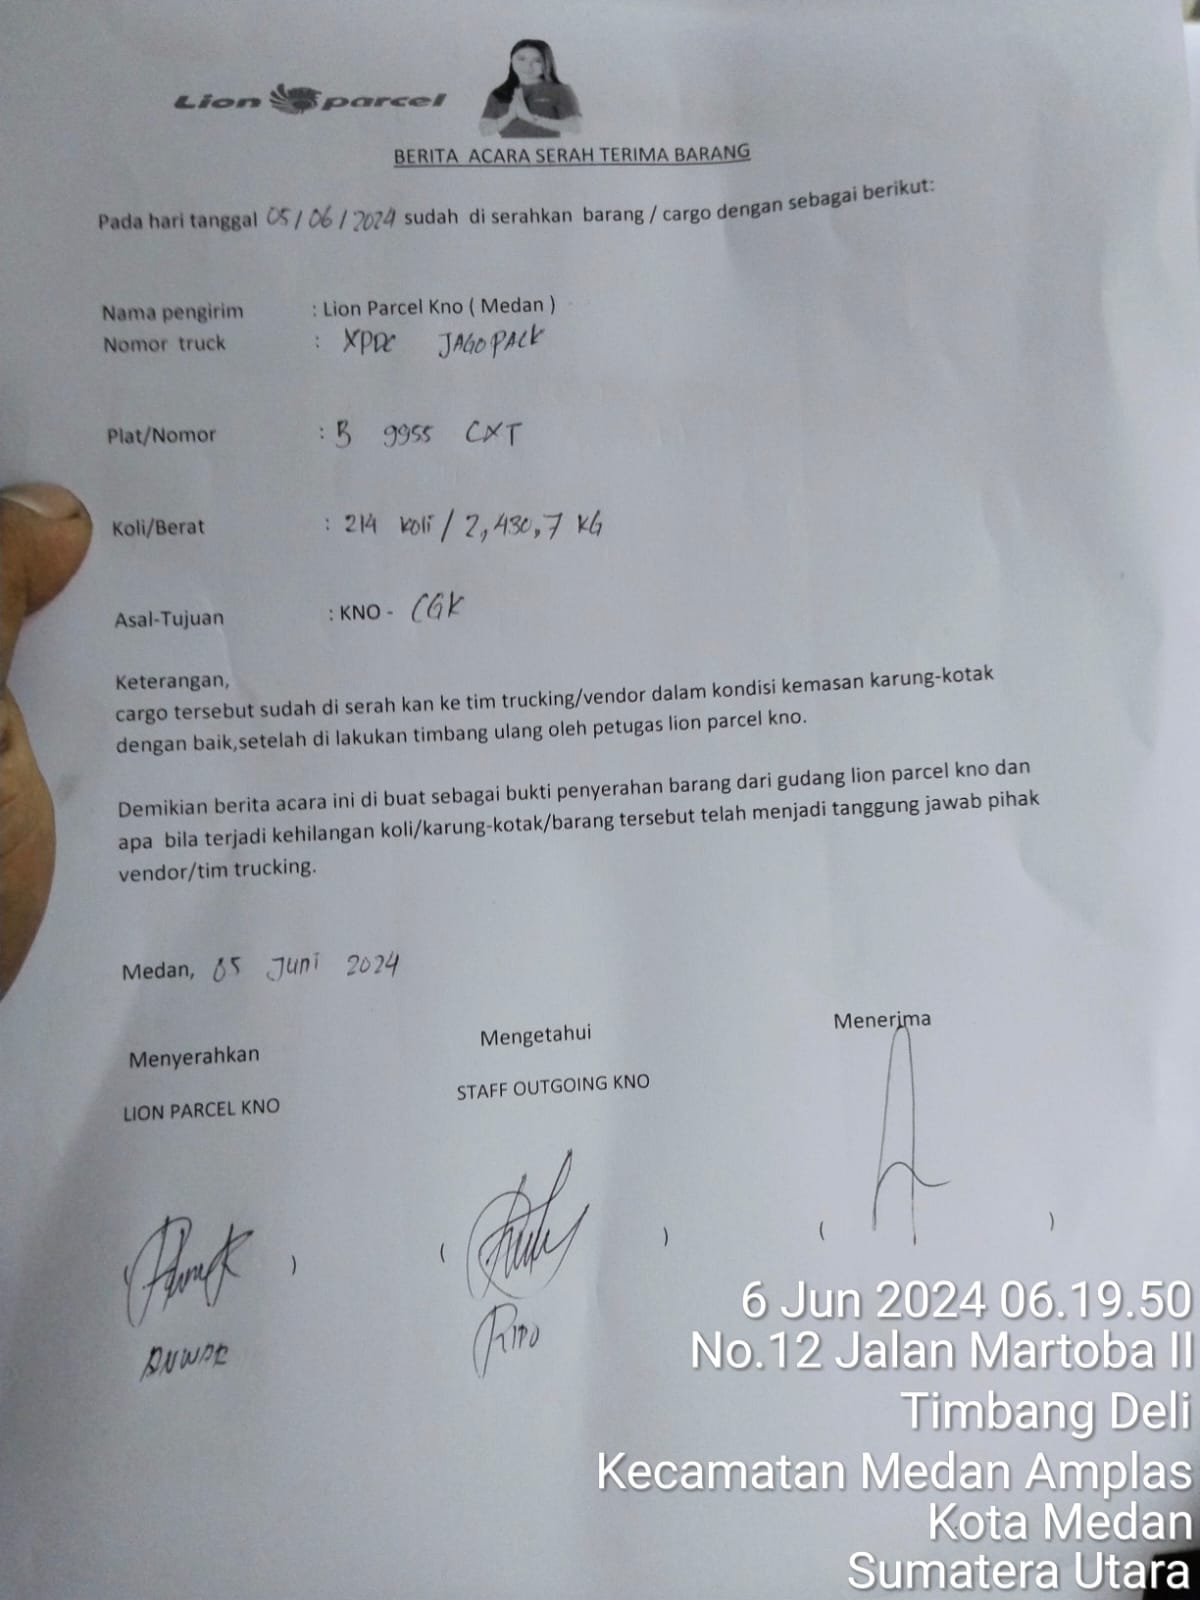 Lion parcel
BERITA ACARA SERAH TERIMA BARANG
Pada hari tanggal 05/06/2024 sudah di serahkan barang / cargo dengan sebagai berikut:
Nama pengirim : Lion Parcel Kno ( Medan )
Nomor truck : XPDC JAGOPACK
Plat/Nomor : B 9955 CXT
Koli/Berat : 214 koli / 2,430,7 KG
Asal-Tujuan : KNO - CGK
Keterangan,
cargo tersebut sudah di serah kan ke tim trucking/vendor dalam kondisi kemasan karung-kotak
dengan baik,setelah di lakukan timbang ulang oleh petugas lion parcel kno.
Demikian berita acara ini di buat sebagai bukti penyerahan barang dari gudang lion parcel kno dan
apa bila terjadi kehilangan koli/karung-kotak/barang tersebut telah menjadi tanggung jawab pihak
vendor/tim trucking.
Medan, 05 Juni 2024
Menyerahkan Mengetahui Menerima
LION PARCEL KNO STAFF OUTGOING KNO
) ( ) ( )
ANWAR
6 Jun 2024 06.19.50
No.12 Jalan Martoba II
Timbang Deli
Kecamatan Medan Amplas
Kota Medan
Sumatera Utara